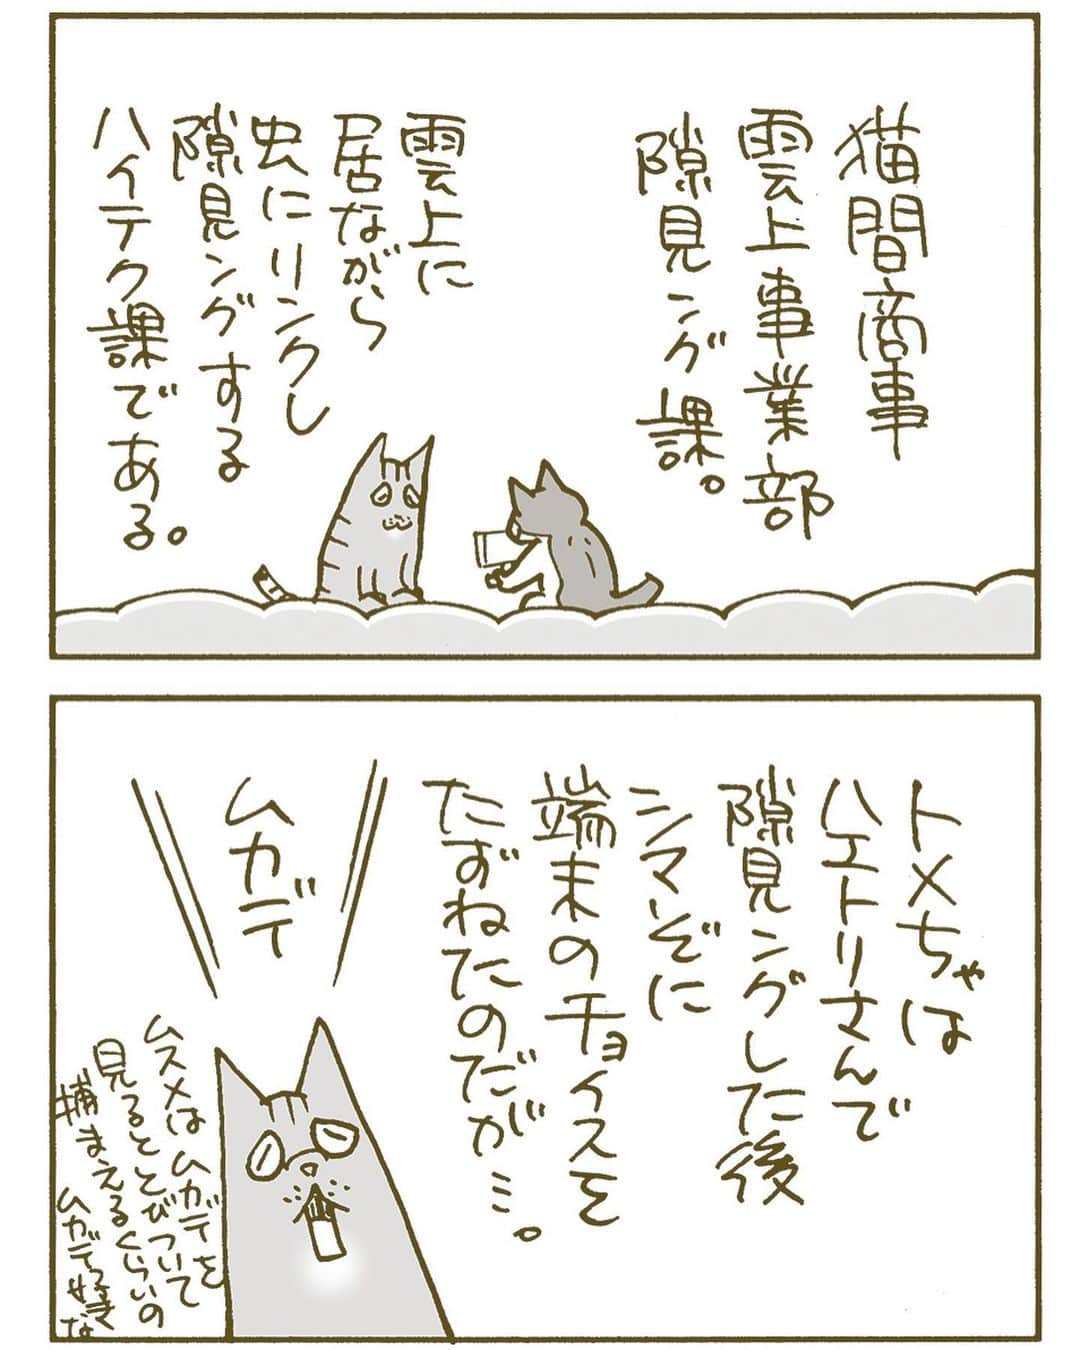 猫間商事
雲上事業部
隙見ング課。
雲上に
居ながら
虫にリンクし
隙見ングする
ハイテク課である。
トメちゃは
ハエトリさんで
隙見ングした後
シマぞに
端末のチョイスを
たずねたのだが…。
ムカデ
ムスメはムカデを
見るととびついて
捕まえるくらいの
ムカデ好きな